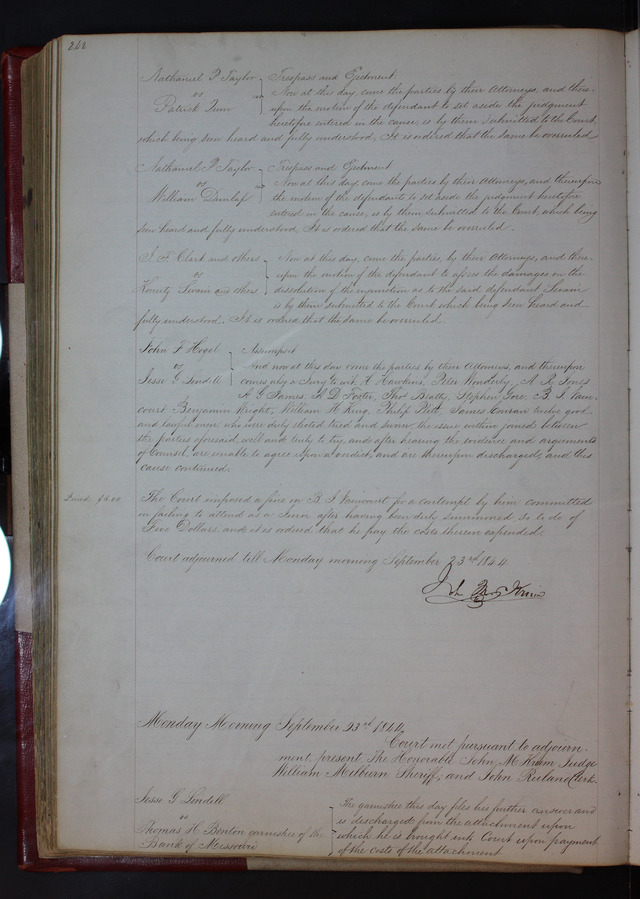 262
Nathaniel P Taylor } Trespass and Ejectment
vs } Now at this day, come the parties by their Attorneys, and there-
Patrick Quin } upon the motion of the defendant to set aside the judgment
heretofore entered in the cause, is by them submitted to the Court
which being seen heard and fully understood, It is ordered that the same be overruled
Nathaniel P Taylor } Trespass and Ejectment
vs } Now at this day, come the parties by their Attorneys, and thereupon
William Dunlap } the motion of the defendants to set aside the judgment heretofore
entered in the cause, is by them submitted to the Court, which being
seen heard and fully understood, It is ordered that the same be overruled.
Clark and others } Now at this day, come the parties, by their Attorneys, and there-
vs } upon the motion of the defendant to assess the damages on the
Swain and others } dissolution of the injunction as to the said defendant Swain
is by them submitted to the Court which being seen heard and
fully understood. It is ordered that the same be overruled.
John F Hogel } Assumpsit
vs } And now at this day come the parties by their Attorneys, and thereupon
Jesse G Lindell } comes also a Jury to wit, A Hawkins, Peter Wonderly, A R Jones
A G James, A D Foster, Thos Beatty, Stephen Gore, B. I. Vain-
court Benjamin Wright, William H King, Philip Pitt James Conran twelve good
and lawful men who were duly elected tried and sworn the issue within joined between
the parties aforesaid, well and truly to try, and after hearing the evidence and arguments
of Counsel, are unable to agree upon a verdict, and are thereupon discharged, and this
cause continued.
$5.00 The Court imposed a fine on B I Vaincourt for a contempt by him committed
in failing to attend as a Juror after having been duly summoned so to do of
Five Dollars, and it is ordered, that he pay the costs therein expended.
Court adjourned till Monday morning September 23rd 1844.
Monday Morning September 23rd 1844
Court met pursuant to adjourn-
ment, present The Honorable John M Krum Judge
William Milburn Sheriff, and John Ruland Clerk
Jesse G Lindell } The garnishee this day files his further answer and
vs } is discharged from the attachment upon
Thomas H Benton garnishee of the } which he is brought into Court upon payment
Bank of Missouri } of the costs of the attachment